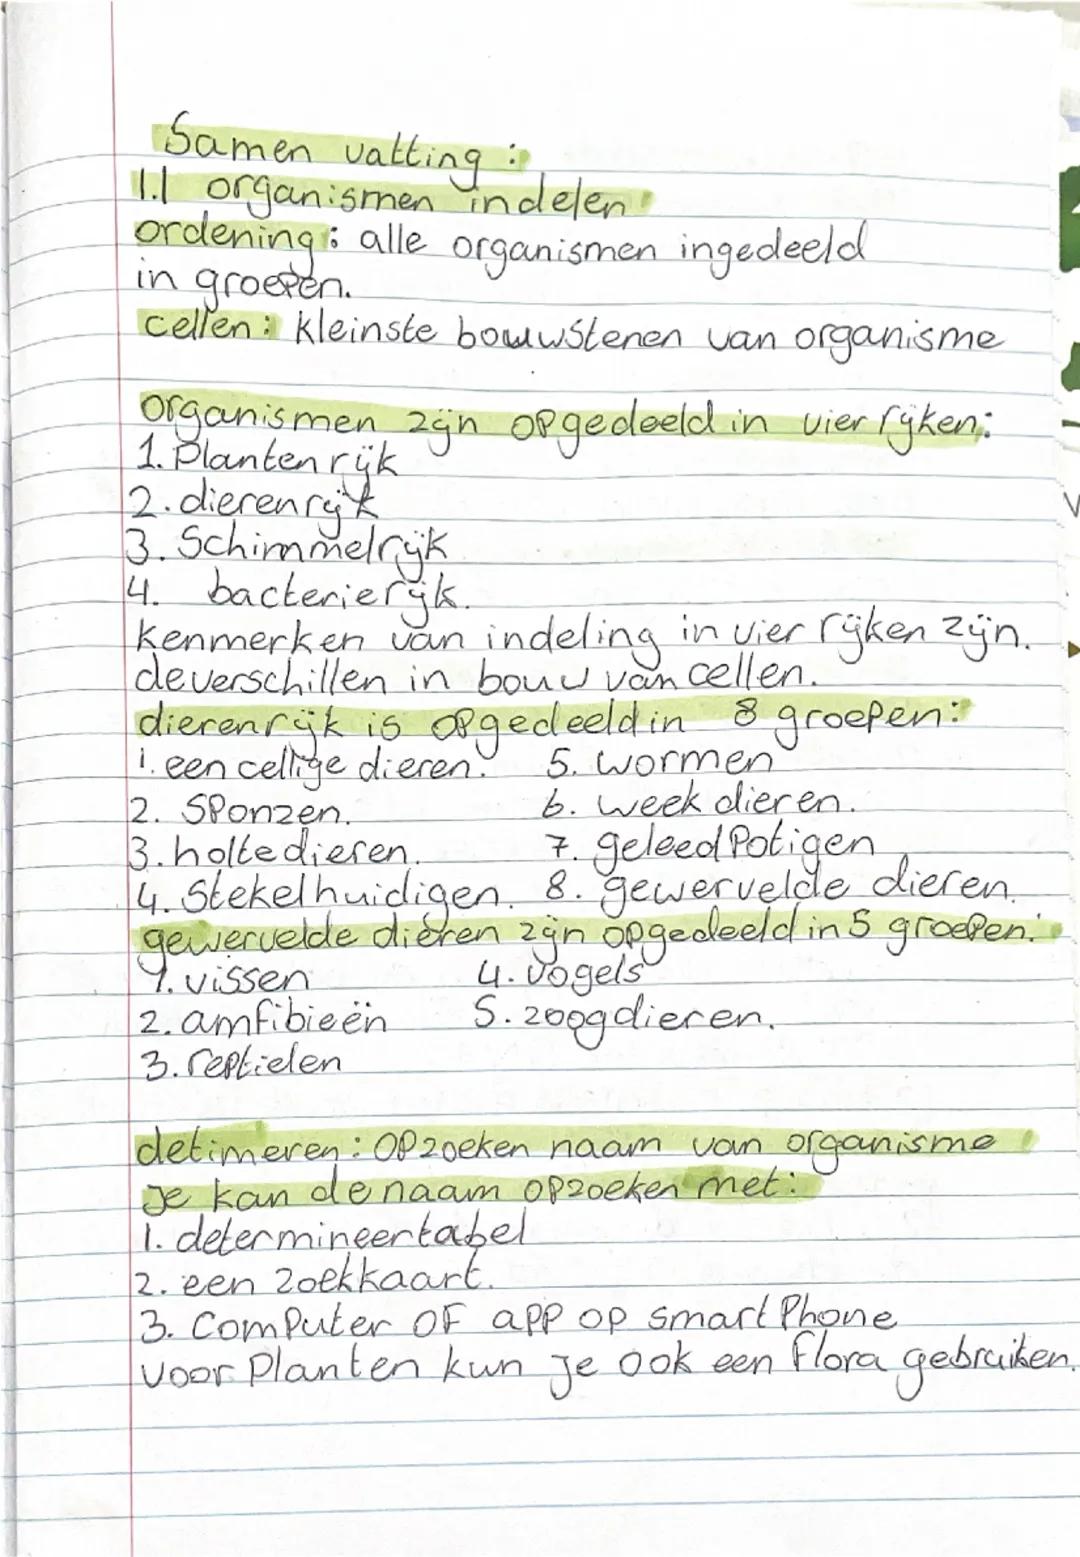 Samenvatting :
1.1 organismen indelen
ordening : alle organismen ingedeeld
in groepen.
cellen : kleinste bouwstenen van organisme
organismen zijn opgedeeld in vier rijken:
1. Plantenrijk
2. dierenrijk
3. Schimmelrijk
4. bacterierijk.
kenmerken van indeling in vier rijken zijn.
de verschillen in bouw van cellen.
dierenrijk is opgedeeld in 8 groepen:
1. een cellige dieren. 5. wormen
2. sponzen. 6. week dieren.
3. holtedieren. 7. geleedpotigen
4. Stekelhuidigen. 8. gewervelde dieren.
gewervelde dieren zijn opgedeeld in 5 groepen:
1. vissen 4. vogels
2. amfibieën 5. zoogdieren.
3. reptielen
detimeren : opzoeken naam van organisme
Je kan de naam opzoeken met :
1. determineertabel
2. een zoekkaart.
3. Computer OF app op smartPhone
voor Planten kun je ook een flora gebruiken.